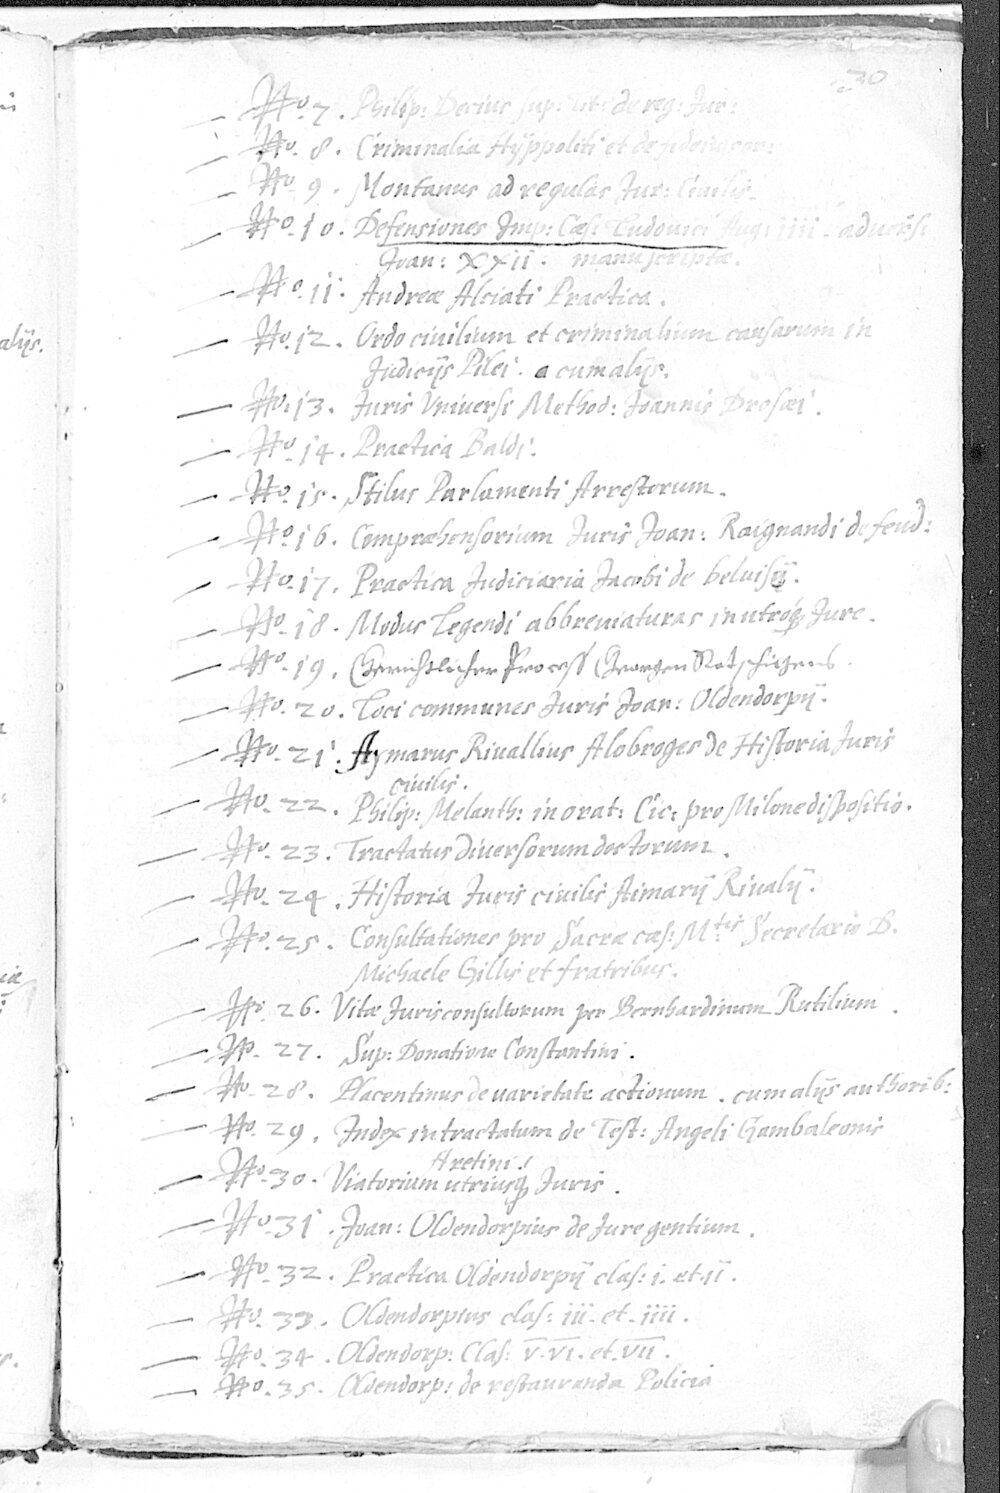 30
— No. 7. Philip: Decius sup: Tit: de reg: Jur:
— No. 8. Criminalia Hyppoliti et de
— No. 9. Montanus ad regulas Jur: Civilis.
— No. 10. Defensiones Imp: Cæs: Ludovici Aug: iiii. advers:
Joan: XXII: manuscriptæ.
— No. 11. Andreæ Alciati Practica.
— No. 12. Ordo civilium et criminalium causarum in
Judicijs Pilei. a cum alijs.
— No. 13. Juris Vniversi Method: Joannis Drosæi.
— No. 14. Practica Baldi.
— No. 15. Stilus Parlamenti Arrestorum.
— No. 16. Compræhensorium Juris Joan: Raignandi de feud:
— No. 17. Practica Judiciaria Jacobi de beluisij.
— No. 18. Modus Legendi abbreviaturas in utroq́ Jure.
— No. 19. Gerichtlicher Process Georgen Rotschitzens.
— No. 20. Loci communes Juris Joan: Oldendorpij.
— No. 21. Aymarus Rivallius Alobroges de Historia Juris
civilis.
— No. 22. Philip: Melanth: in orat: Cic: pro Milone dispositio.
— No. 23. Tractatus diversorum doctorum.
— No. 24. Historia Juris civilis Aimarij Rivalij.
— No. 25. Consultationes pro Sacræ cæs: Mtis Secretario D.
Michaele Gillis et fratribus.
— No. 26. Vitæ Jurisconsultorum per Bernhardinum Rutilium.
— No. 27. Sup: Donatione Constantini.
— No. 28. Placentinus de varietate actionum. cum alijs authorib:
— No. 29. Index in tractatum de Test: Angeli Gambaleonis
Aretini.
— No. 30. Viatorium utriusq́ Juris.
— No. 31. Joan: Oldendorpius de Jure gentium.
— No. 32. Practica Oldendorpij clas: i. et. ii.
— No. 33. Oldendorpius clas: iii. et. iiii.
— No. 34. Oldendorp: Clas: v. vi. et. vii.
— No. 35. Oldendorp: de restauranda Policia
alijs.